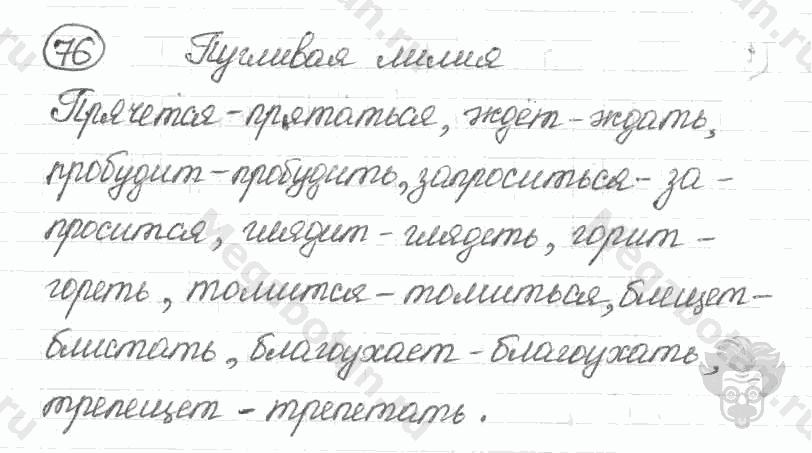 76 Пугливая лилия
Прячется – прятаться, ждёт – ждать,
пробудит – пробудить, запроситься – за-
просится, глядит – глядеть, горит –
гореть, томится – томиться, блещет –
блистать, благоухает – благоухать,
трепещет – трепетать.